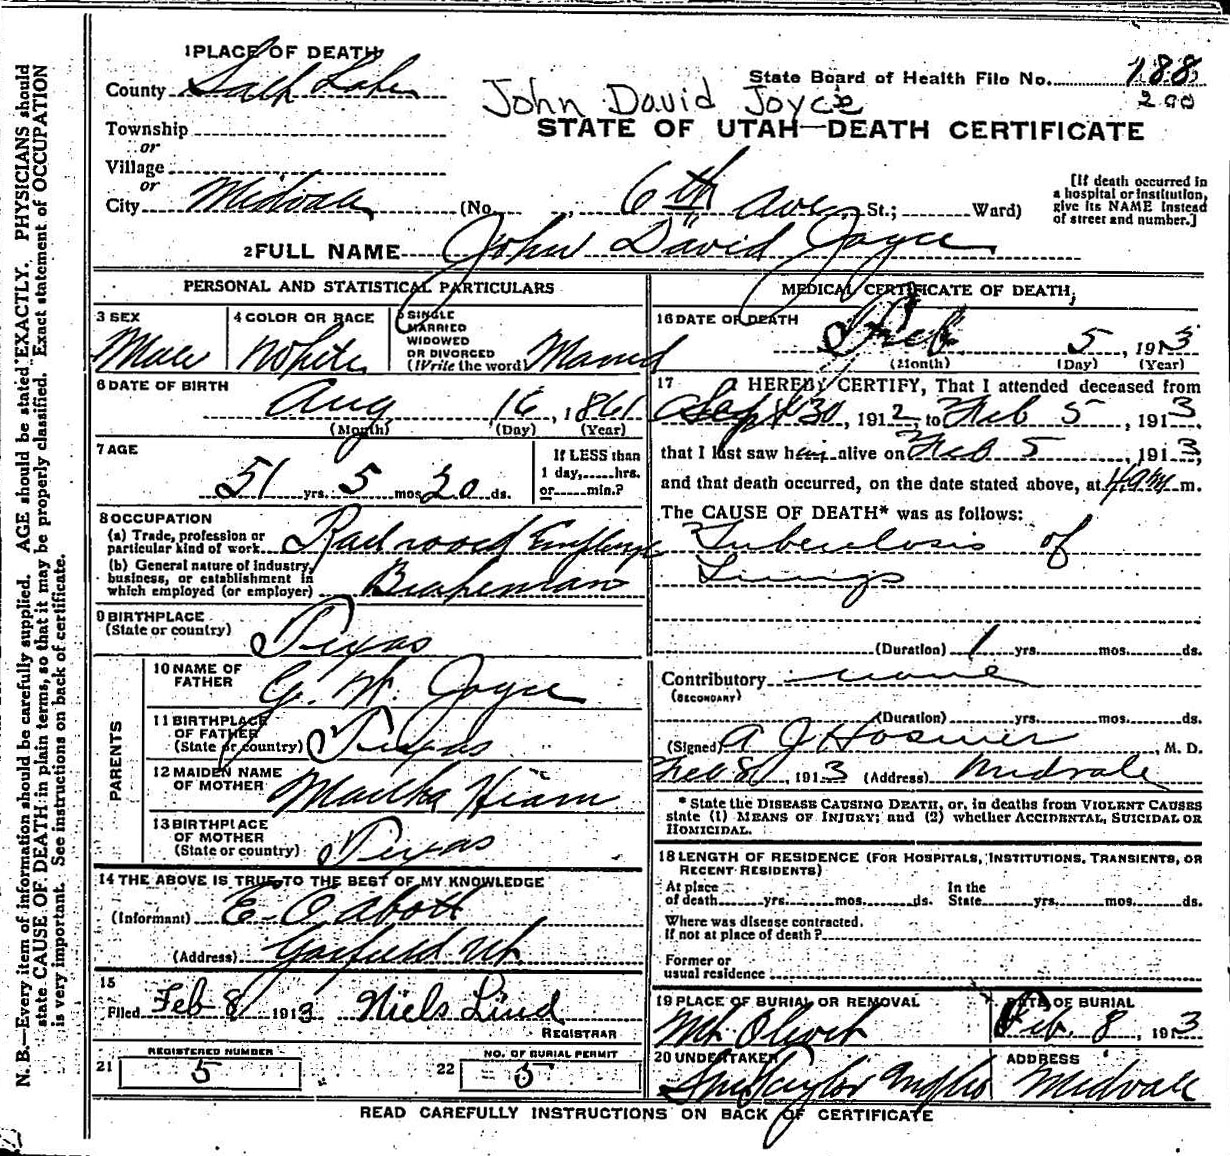 1 PLACE OF DEATH
County Salt Lake
State Board of Health File No. 188
200
John David Joyce
STATE OF UTAH—DEATH CERTIFICATE
Township
or
Village
or
City Midvale (No. , 6th Ave, St.; Ward)
[If death occurred in
a hospital or institution,
give its NAME instead
of street and number.]
2 FULL NAME John David Joyce
PERSONAL AND STATISTICAL PARTICULARS
3 SEX
Male
4 COLOR OR RACE
White
5 SINGLE
MARRIED
WIDOWED
OR DIVORCED
(Write the word) Married
6 DATE OF BIRTH
Aug 16, 1861
(Month) (Day) (Year)
7 AGE
51 yrs. 5 mos. 20 ds.
If LESS than
1 day,......hrs.
or......min.?
8 OCCUPATION
(a) Trade, profession or
particular kind of work Railroad
(b) General nature of industry,
business, or establishment in
which employed (or employer) Brakeman
9 BIRTHPLACE
(State or country) Texas
PARENTS
10 NAME OF
FATHER G. W. Joyce
11 BIRTHPLACE
OF FATHER
(State or country) Texas
12 MAIDEN NAME
OF MOTHER
13 BIRTHPLACE
OF MOTHER
(State or country) Texas
14 THE ABOVE IS TRUE TO THE BEST OF MY KNOWLEDGE
(Informant) E. C. Abott
(Address) Garfield Ut.
15
Filed Feb 8 1913 Niels Lind
REGISTRAR
REGISTERED NUMBER
21 5
NO. OF BURIAL PERMIT
22 5
MEDICAL CERTIFICATE OF DEATH,
16 DATE OF DEATH
Feb. 5, 1913
(Month) (Day) (Year)
17 I HEREBY CERTIFY, That I attended deceased from
Sept 30, 1912, to Feb 5, 1913
that I last saw him alive on Feb 5, 1913,
and that death occurred, on the date stated above, at 4 am m.
The CAUSE OF DEATH* was as follows:
Tuberculosis of
Lungs
(Duration) 1 yrs. mos. ds.
Contributory none
(SECONDARY)
(Duration) yrs. mos. ds.
(Signed) A J Hosmer, M. D.
Feb 8, 1913 (Address) Midvale
* State the DISEASE CAUSING DEATH, or, in deaths from VIOLENT CAUSES
state (1) MEANS OF INJURY; and (2) whether ACCIDENTAL, SUICIDAL OR
HOMICIDAL.
18 LENGTH OF RESIDENCE (FOR HOSPITALS, INSTITUTIONS, TRANSIENTS, OR
RECENT RESIDENTS)
At place
of death yrs. mos. ds.
In the
State yrs. mos. ds.
Where was disease contracted.
If not at place of death?
Former or
usual residence
19 PLACE OF BURIAL OR REMOVAL
Mt. Olivet
DATE OF BURIAL
Feb. 8, 1913
20 UNDERTAKER
Taylor
ADDRESS
Midvale
READ CAREFULLY INSTRUCTIONS ON BACK OF CERTIFICATE
N. B.—Every item of information should be carefully supplied. AGE should be stated EXACTLY. PHYSICIANS should
state CAUSE OF DEATH in plain terms, so that it may be properly classified. Exact statement of OCCUPATION
is very important. See instructions on back of certificate.